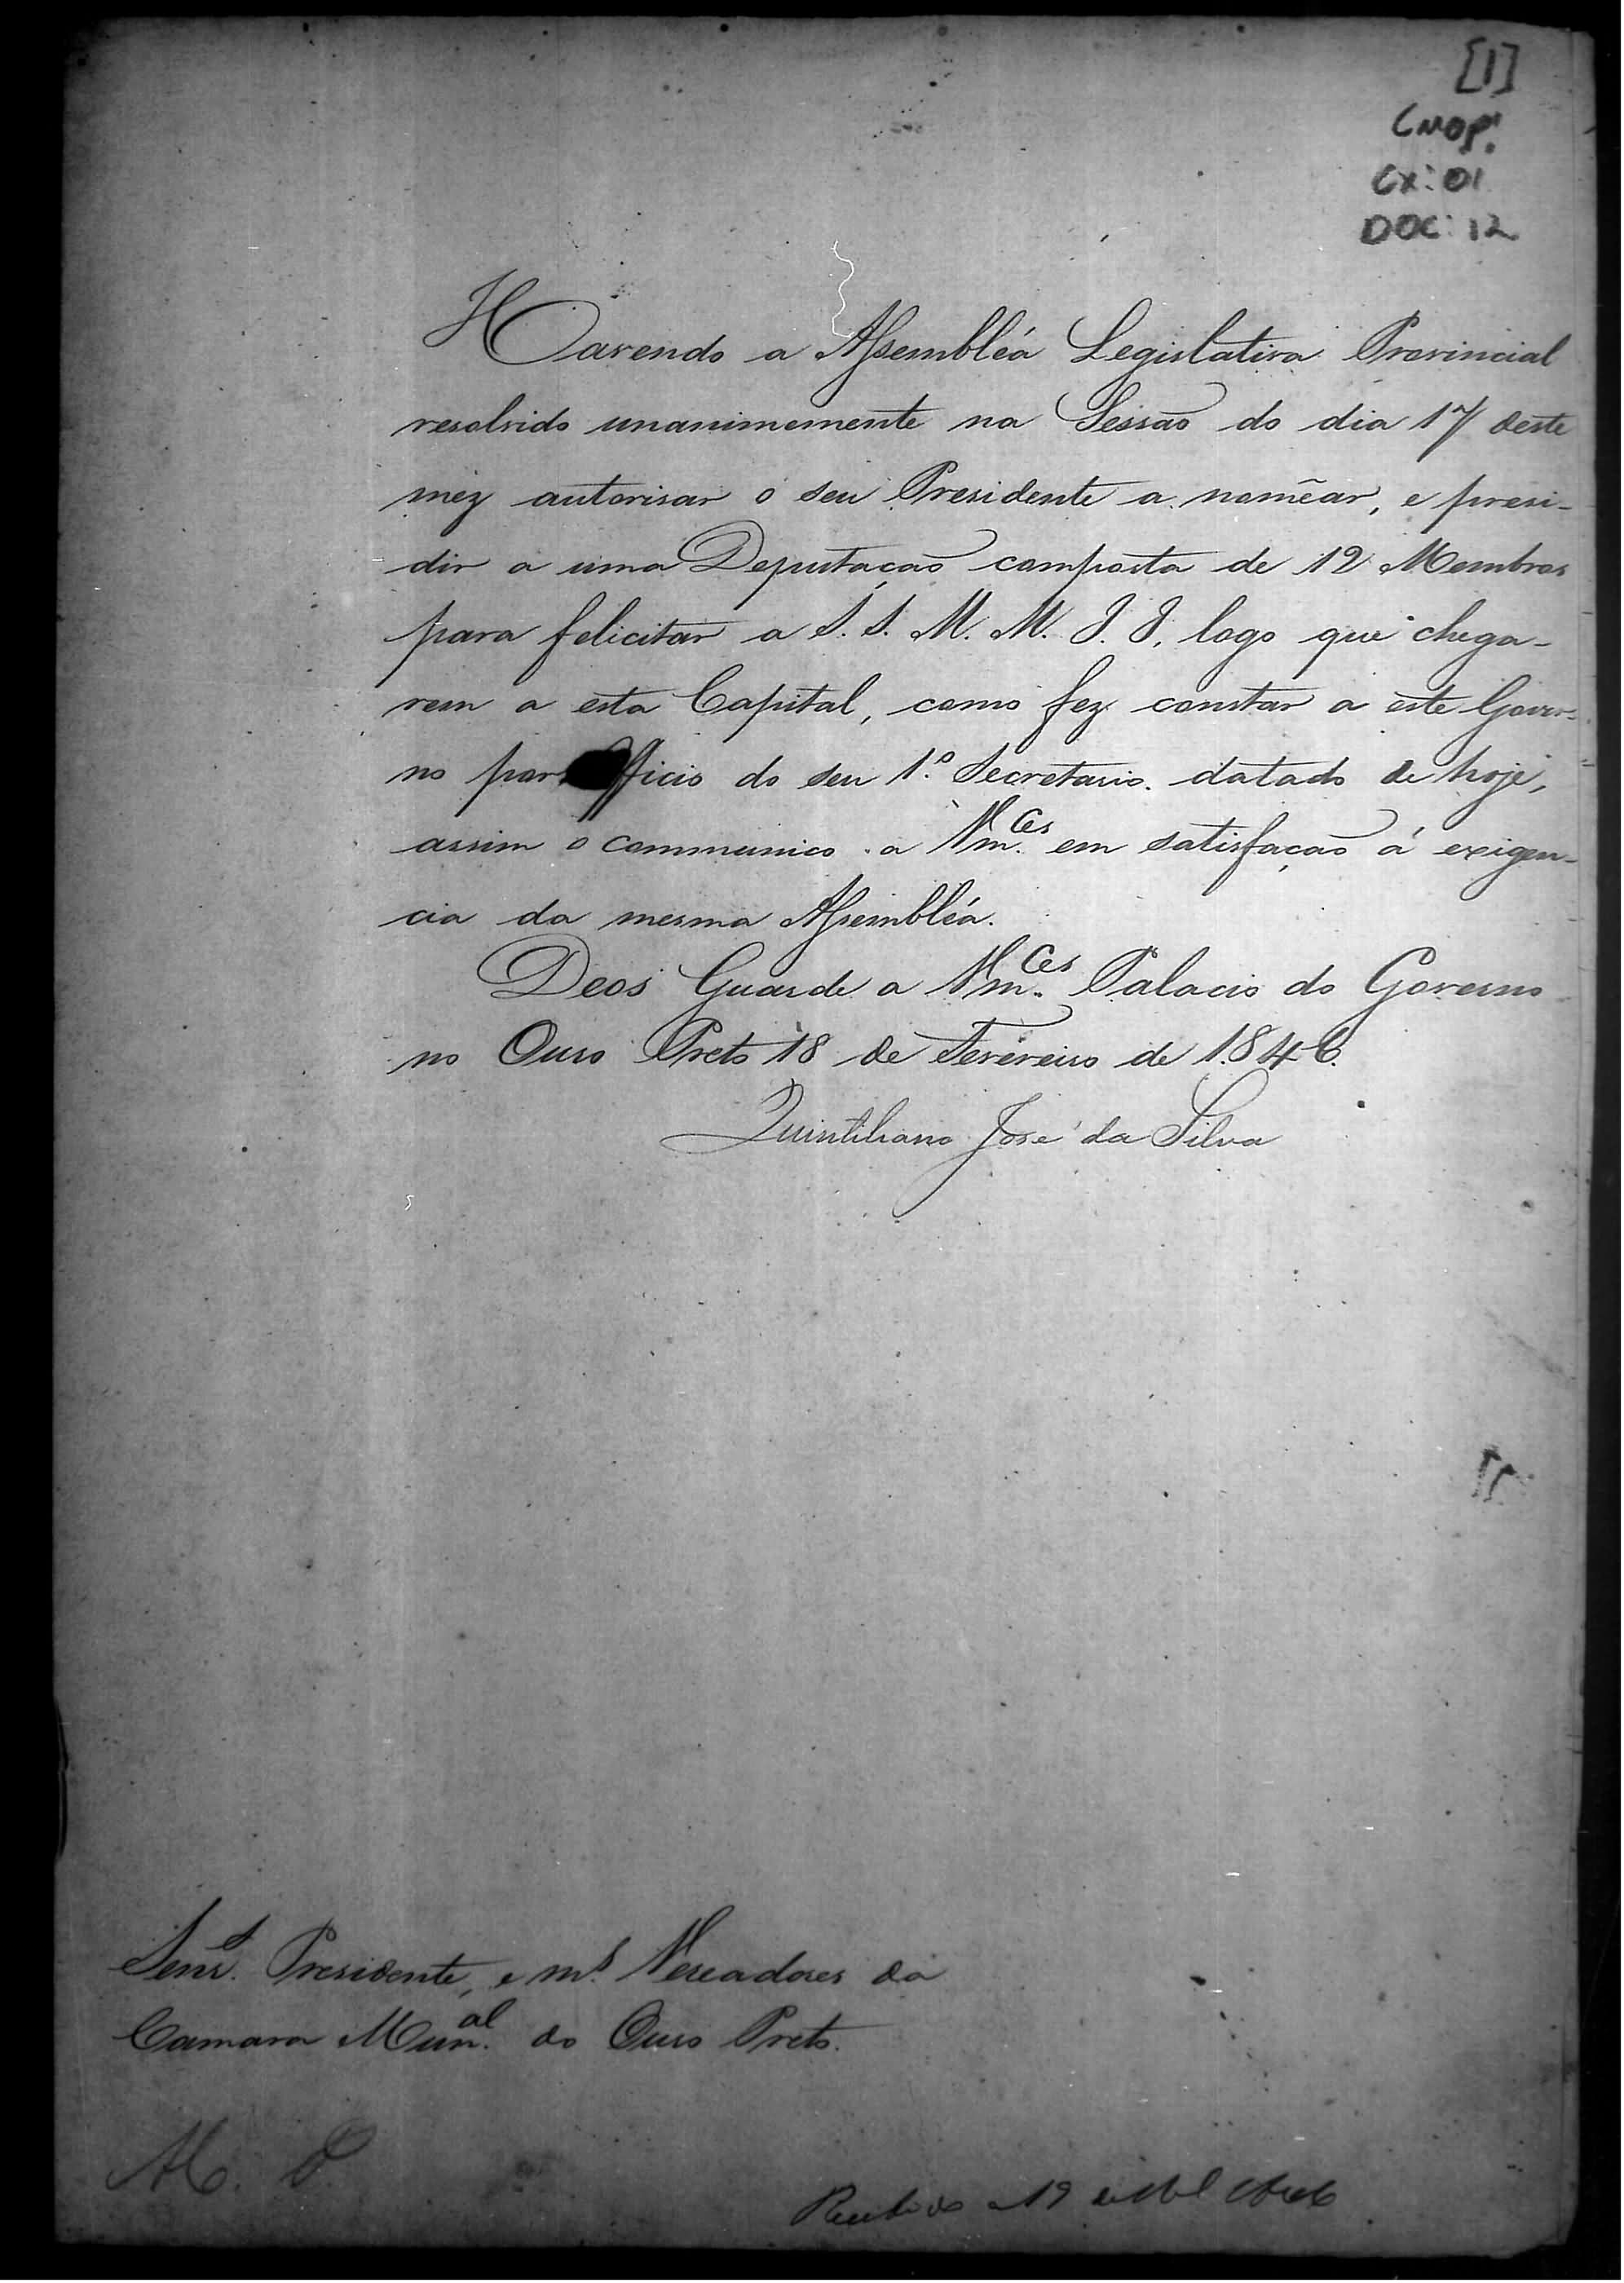 [1]
CMOP.
CX: 01
DOC: 12
Havendo a Assembléa Legislativa Provincial
resolvido unanimemente na Sessão do dia 17 deste
mez autorisar o seu Presidente a nomear, e presi-
dir a uma Deputação composta de 12 Membros
para felicitar a S. S. M. M. I. I. logo que chega-
rem a esta Capital, como fez constar a este Gover-
no por officio do seu 1.º Secretario datado de hoje,
assim o communico a Vm.ces em satisfação á exigen-
cia da mesma Assembléa.
Deos Guarde a Vm.ces Palacio do Governo
no Ouro Preto 18 de Fevereiro de 1846.
Quintiliano José da Silva
Senr.s Presidente, e m.s Vereadores da
Camara Mun.al do Ouro Preto.
Recebido a 19